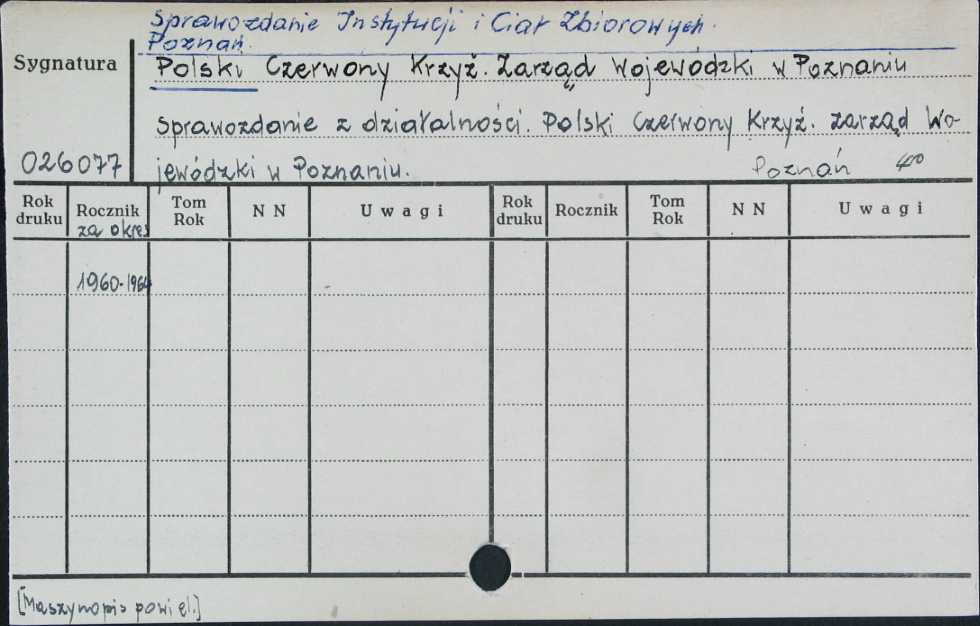 Sprawozdanie Instytucji i Ciał Zbiorowych.
Poznań.
Sygnatura
Polski Czerwony Krzyż. Zarząd Wojewódzki w Poznaniu
Sprawozdanie z działalności. Polski Czerwony Krzyż. Zarząd Wo-
026077
jewódzki w Poznaniu.
Poznań 4°
Rok druku Rocznik za okres Tom Rok N N Uwagi Rok druku Rocznik Tom Rok N N Uwagi
1960-1964
[Maszynopis powiel.]